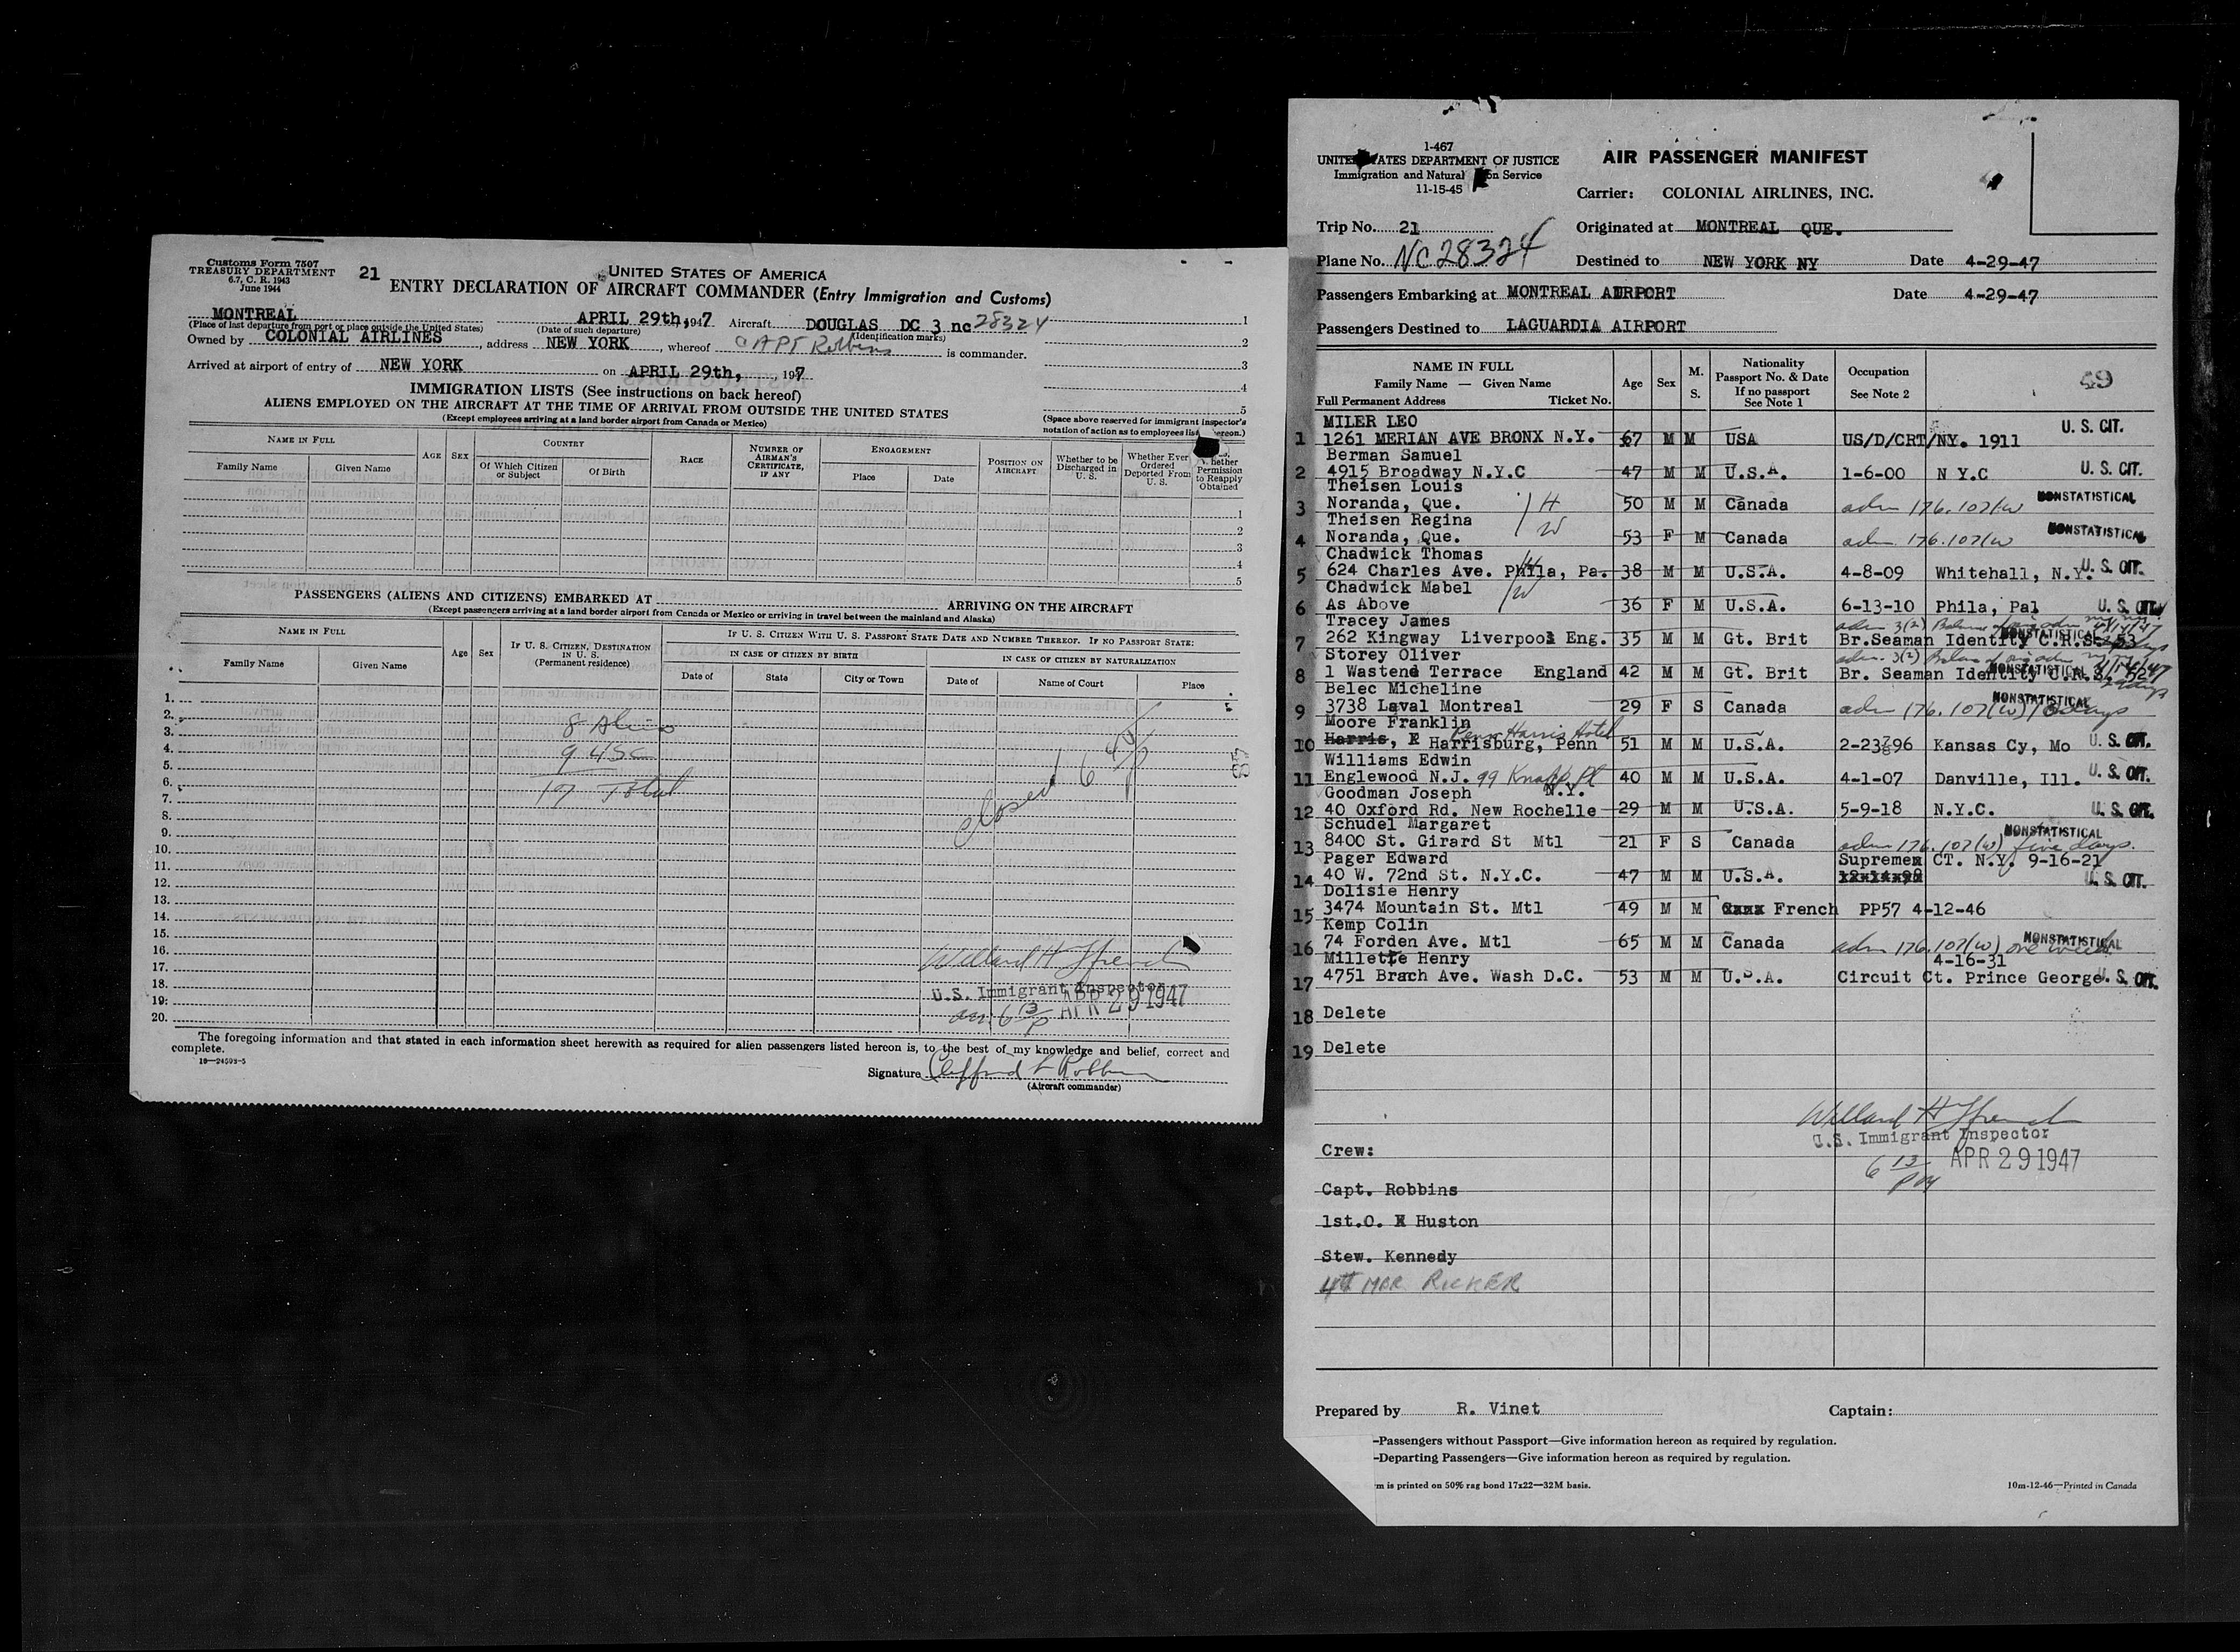 Customs Form 7507
TREASURY DEPARTMENT
6.7, C. R. 1943
June 1944
21
UNITED STATES OF AMERICA
ENTRY DECLARATION OF AIRCRAFT COMMANDER (Entry Immigration and Customs)
MONTREAL APRIL 29th, 1947 Aircraft DOUGLAS DC 3 nc 28324
(Place of last departure from port or place outside the United States) (Date of such departure) (Identification marks)
Owned by COLONIAL AIRLINES, address NEW YORK, whereof CAPT Robbins is commander.
Arrived at airport of entry of NEW YORK on APRIL 29th, 197
1
2
3
4
5
IMMIGRATION LISTS (See instructions on back hereof)
ALIENS EMPLOYED ON THE AIRCRAFT AT THE TIME OF ARRIVAL FROM OUTSIDE THE UNITED STATES
(Except employees arriving at a land border airport from Canada or Mexico)
(Space above reserved for immigrant inspector's
notation of action as to employees hereon.)
NAME IN FULL
Family Name Given Name
AGE SEX
COUNTRY
Of Which Citizen or Subject Of Birth
RACE
NUMBER OF AIRMAN'S CERTIFICATE, IF ANY
ENGAGEMENT
Place Date
POSITION ON AIRCRAFT
Whether to be Discharged in U. S.
Whether Ever Ordered Deported From U. S.
Permission to Reapply Obtained
1
2
3
4
5
PASSENGERS (ALIENS AND CITIZENS) EMBARKED AT ARRIVING ON THE AIRCRAFT
(Except passengers arriving at a land border airport from Canada or Mexico or arriving in travel between the mainland and Alaska)
NAME IN FULL
Family Name Given Name
Age Sex
IF U. S. CITIZEN, DESTINATION IN U. S. (Permanent residence)
IF U. S. CITIZEN WITH U. S. PASSPORT STATE DATE AND NUMBER THEREOF. IF NO PASSPORT STATE:
IN CASE OF CITIZEN BY BIRTH
Date of State City or Town
IN CASE OF CITIZEN BY NATURALIZATION
Date of Name of Court Place
1.
2.
3. 8 Aliens
4. 9 USC
5.
6. 17 Total
7.
8. closed
9.
10.
11.
12.
13.
14.
15.
16.
17. Willard H Ffrench
18. U.S. Immigrant Inspector
19. APR 29 1947
20. arr. 6 13/P
The foregoing information and that stated in each information sheet herewith as required for alien passengers listed hereon is, to the best of my knowledge and belief, correct and
complete.
16—24598-5
Signature Clifford L Robbins
(Aircraft commander)
1-467
DEPARTMENT OF JUSTICE
Immigration and Service
11-15-45
AIR PASSENGER MANIFEST
Carrier: COLONIAL AIRLINES, INC.
Trip No. 21 Originated at MONTREAL QUE.
Plane No. NC28324 Destined to NEW YORK NY Date 4-29-47
Passengers Embarking at MONTREAL AIRPORT Date 4-29-47
Passengers Destined to LAGUARDIA AIRPORT
NAME IN FULL
Family Name — Given Name
Full Permanent Address Ticket No.
Age Sex M. S.
Nationality
Passport No. & Date
If no passport
See Note 1
Occupation
See Note 2
49
MILER LEO U. S. CIT.
1 1261 MERIAN AVE BRONX N.Y. 67 M M USA US/D/CRT/NY. 1911
Berman Samuel
2 4915 Broadway N.Y.C 47 M M U.S.A. 1-6-00 N Y.C U. S. CIT.
Theisen Louis
3 Noranda, Que. H 50 M M Canada adm 176.107(w NONSTATISTICAL
Theisen Regina
4 Noranda, Que. W 53 F M Canada adm 176.107(w NONSTATISTICAL
Chadwick Thomas
5 624 Charles Ave. Phila, Pa. H 38 M M U.S.A. 4-8-09 Whitehall, N.Y. U. S. CIT.
Chadwick Mabel
6 As Above W 36 F M U.S.A. 6-13-10 Phila, Pal U. S. CIT.
Tracey James
7 262 Kingway Liverpool Eng. 35 M M Gt. Brit Br.Seaman Identity C.R.S. 53 NONSTATISTICAL
Storey Oliver
8 1 Wastene Terrace England 42 M M Gt. Brit Br. Seaman Identity C.R.S. 52 NONSTATISTICAL
Belec Micheline
9 3738 Laval Montreal 29 F S Canada adm 176.107(w) 10 days NONSTATISTICAL
Moore Franklin Penn Harris Hotel
10 Harris, Harrisburg, Penn 51 M M U.S.A. 2-23-96 Kansas Cy, Mo U. S. CIT.
Williams Edwin
11 Englewood N.J. 99 Knapp Pl 40 M M U.S.A. 4-1-07 Danville, Ill. U. S. CIT.
Goodman Joseph N.Y.
12 40 Oxford Rd. New Rochelle 29 M M U.S.A. 5-9-18 N.Y.C. U. S. CIT.
Schudel Margaret
13 8400 St. Girard St Mtl 21 F S Canada adm 176.107(w) five days. NONSTATISTICAL
Pager Edward Supreme CT. N.Y. 9-16-21
14 40 W. 72nd St. N.Y.C. 47 M M U.S.A. U. S. CIT.
Dolisie Henry
15 3474 Mountain St. Mtl 49 M M French PP57 4-12-46
Kemp Colin
16 74 Forden Ave. Mtl 65 M M Canada adm 176.107(w) one week NONSTATISTICAL
Millette Henry 4-16-31
17 4751 Brach Ave. Wash D.C. 53 M M U.S.A. Circuit Ct. Prince George U. S. CIT.
18 Delete
19 Delete
Willard H Ffrench
U.S. Immigrant Inspector
6 13/PM APR 29 1947
Crew:
Capt. Robbins
1st.O. Huston
Stew. Kennedy
4th MBR. RICKER
Prepared by R. Vinet Captain:
—Passengers without Passport—Give information hereon as required by regulation.
—Departing Passengers—Give information hereon as required by regulation.
m is printed on 50% rag bond 17x22—32M basis.
10m-12-46—Printed in Canada